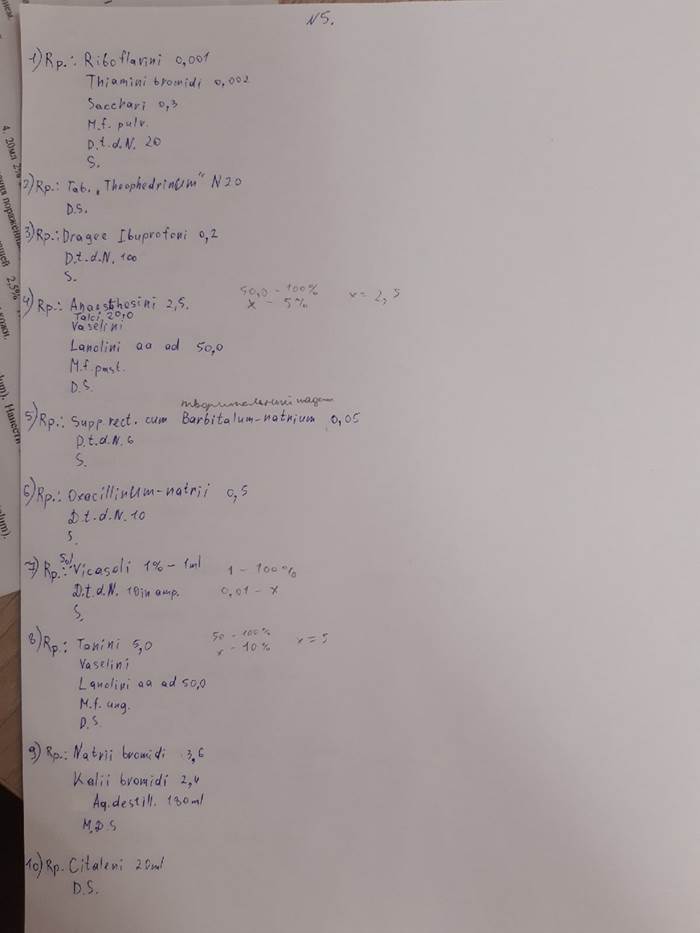 N5.
1) Rp.: Riboflavini 0,001
Thiamini bromidi 0,002
Sacchari 0,3
M.f. pulv.
D.t.d.N. 20
S.
2) Rp.: Tab. „Theophedrinum" N20
D.S.
3) Rp.: Dragee Ibuprofeni 0,2
D.t.d.N. 100
S.
4) Rp.: Anaesthesini 2,5. 50,0 - 100% x = 2,5
Talci 20,0 x - 5%
Vaselini
Lanolini aa ad 50,0
M.f. past.
D.S.
творительный падеж
5) Rp.: Supp. rect. cum Barbitalum-natrium 0,05
D.t.d.N. 6
S.
6) Rp.: Oxacillinum-natrii 0,5
D.t.d.N. 10
S.
7) Rp.: Sol. Vicasoli 1% - 1ml 1 - 100%
D.t.d.N. 10 in amp. 0,01 - x
S.
8) Rp.: Tanini 5,0 50 - 100% x = 5
Vaselini x - 10%
Lanolini aa ad 50,0
M.f. ung.
D.S.
9) Rp.: Natrii bromidi 3,6
Kalii bromidi 2,4
Aq. destill. 180ml
M.D.S
10) Rp. Citaleni 20ml
D.S.
4. 20мл 2%
2,5%
кожи.
Нанести